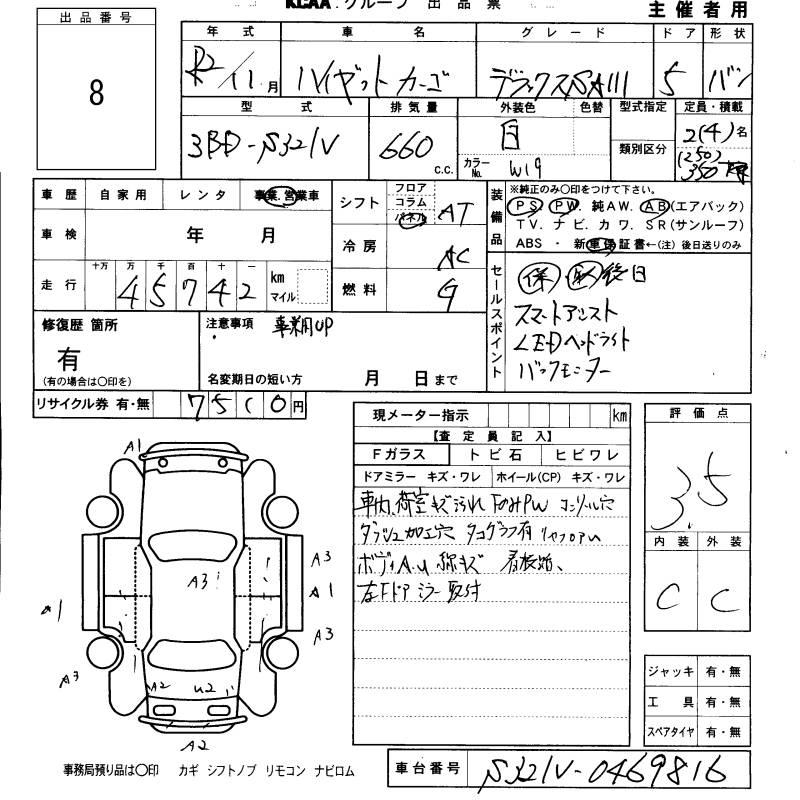 KCAA グループ 出品票 主催者用
出品番号
8
年式 車名 グレード ドア 形状
R2/11月 ハイゼットカーゴ デラックスSAIII 5 バン
型式 排気量 外装色 色替 型式指定 定員・積載
類別区分
3BD-S321V 660 c.c. 白 カラーNo. W19 2(4)名
(250)
350
車歴 自家用 レンタ 事業.営業車
シフト フロア コラム パネル AT
車検 年 月
冷房 AC
走行 十万 万 千 百 十 一
45742 km マイル
燃料 G
装備品 ※純正のみ○印をつけて下さい。
PS. PW. 純AW. AB(エアバック)
TV. ナビ. カワ. SR(サンルーフ)
ABS ・ 新車保証書←(注) 後日送りのみ
修復歴 箇所
有
(有の場合は○印を)
注意事項 事業用UP
名変期日の短い方 月 日まで
セールスポイント
保 取 後日
スマートアシスト
LEDヘッドライト
バックモニター
リサイクル券 有・無 7510円
現メーター指示 km
【査定員記入】
Fガラス トビ石 ヒビワレ
ドアミラー キズ・ワレ ホイール(CP) キズ・ワレ
車内、荷室キズ汚れ FのみPW コンソール穴
ダッシュ加工穴 タコグラフ有
ボディA.U 線キズ 看板跡、
左Fドアミラー取付
評価点
3.5
内装 外装
C C
A1
A3
A1
A3
A3
A1
A3
A2 U2
A2
ジャッキ 有・無
工具 有・無
スペアタイヤ 有・無
事務局預り品は○印 カギ シフトノブ リモコン ナビロム
車台番号 S321V-0469816